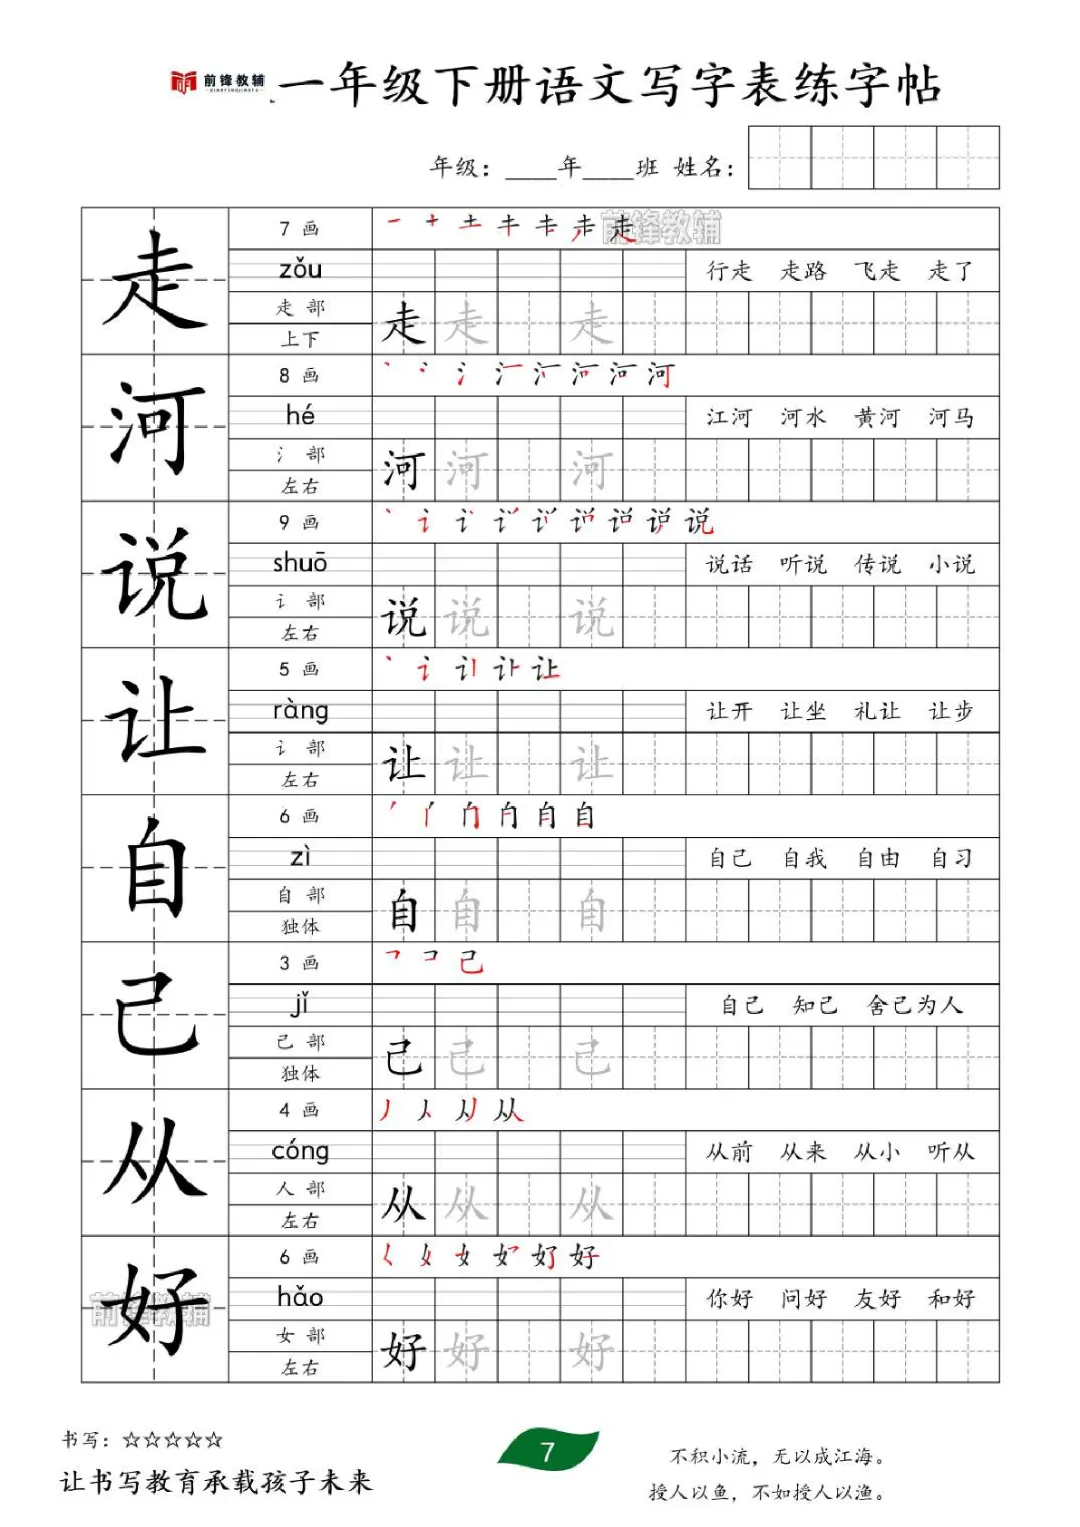 前锋教辅
QIANFENGJIAOFU
一年级下册语文写字表练字帖
年级：____年____班 姓名：
走
7 画
前锋教辅
zǒu
行走 走路 飞走 走了
走 部
走 走 走
上下
河
8 画
hé
江河 河水 黄河 河马
氵 部
河 河 河
左右
说
9 画
shuō
说话 听说 传说 小说
讠 部
说 说 说
左右
让
5 画
ràng
让开 让坐 礼让 让步
讠 部
让 让 让
左右
自
6 画
zì
自己 自我 自由 自习
自 部
自 自 自
独体
己
3 画
jǐ
自己 知己 舍己为人
己 部
己 己 己
独体
从
4 画
cóng
从前 从来 从小 听从
人 部
从 从 从
左右
好
前锋教辅
6 画
hǎo
你好 问好 友好 和好
女 部
好 好 好
左右
书写：☆☆☆☆☆
让书写教育承载孩子未来
7
不积小流，无以成江海。
授人以鱼，不如授人以渔。